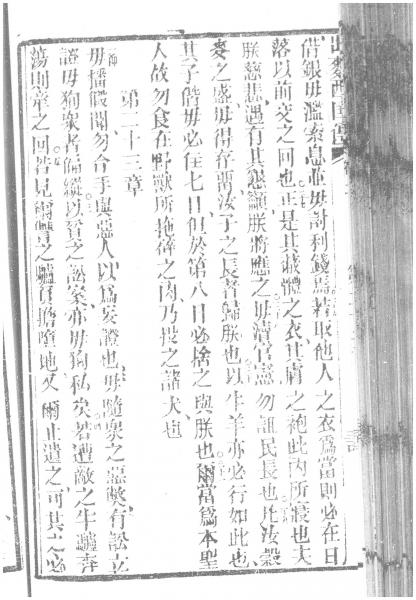 出麥西國傳
借銀毋濫索息並毋討利錢焉若取他人之衣為當則必在日
落以前交之囘也正是其蔽體之衣其膚之袍此內所寢也夫
朕慈悲遇有其懇籲朕將應之毋瀆官憲勿詛民長也托汝糓
麥之盛毋得存畱汝子之長者歸朕也以牛羊亦必行如此也
其子偕母必在七日但於第八日必捨之與朕也爾當為本聖
人故勿食在野獸所拖碎之肉乃投之諸犬也
第二十三章
毋播假聞勿合手與惡人以為妄證也毋隨眾之惡獘有訟立
證毋狥眾者偏縱以背之訟案亦毋狥私矣若遭敵之牛驢奔
蕩則牽之囘若見爾讐之驢負擔墮地又爾止遣之可其之必